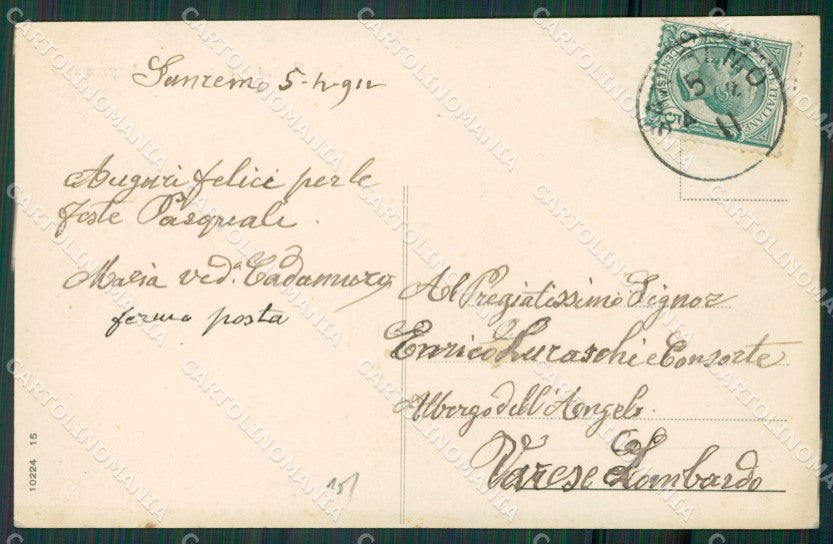 Sanremo 5-4-911
Auguri felici per le
feste Pasquali.
Maria ved.a Cadamuro
fermo posta
Al Pregiatissimo Signor
Enrico Luraschi e Consorte
Albergo dell'Angelo.
Varese Lombardo
10224 15
CARTOLINOMANIA